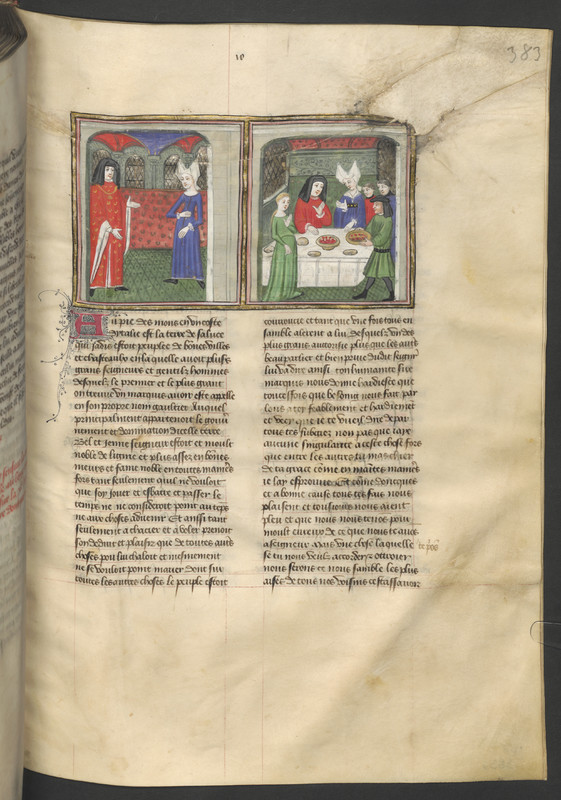 383
Au pie des mons en un coste
dytalie est la terre de saluce
qui jadis estoit peuplee de bonnes villes
et chasteaulx en laquelle avoit plus's
grans seigneurs et gentilz hommes
desquelz le premier et le plus grant
on treuve un marquis avoir este appelle
en son propre nom gaultier auquel
principalment appartenoit le gouv
nement et domination dicelle terre
Bel et jenne seigneur estoit et moult
noble de lignie et plus assez en bonnes
meurs et fame noble en toutes manies
fors tant seulement quil ne vouloit
que soy jouer et esbatre et passer le
temps ne ne consideroit point au teps
ne aux choses advenir Et ainsi tant
seulement a chacier et a voler prenoit
son deduit et plaisir que de toutes autres
choses pou lui chaloit et mesmement
ne se vouloit point marier dont sur
toutes les autres choses le peuple estoit
courroucie et tant que une fois tous en
samble alerent a lui desquelz lun des
plus grans auctorise plus que les autres
beau parlier et bien prive dudit seigneur
lui va dire ainsi ton humanite sire
marquis nous donne hardiesce que
toutesfois que besoing nous fait par
lons a toy feablement et hardiement
et veez que je te vueil dire de par
tous tes subgiez non pas que jaye
aucune singularite a ceste chose fors
que entre les autres tu mas chier
de ta grace come en maintes manies
je lay esprouve Et come doncques
et a bonne cause tous tes fais nous
plaisent et tousjours nous aient
pleu et que nous nous tenons pour
moult eureux de ce que nous tavons
a seigneur mais une chose laquelle
se tu nous veulz accorder et ottroier
nous serons et nous samble les plus
aises de tous noz voisins ce est savoir